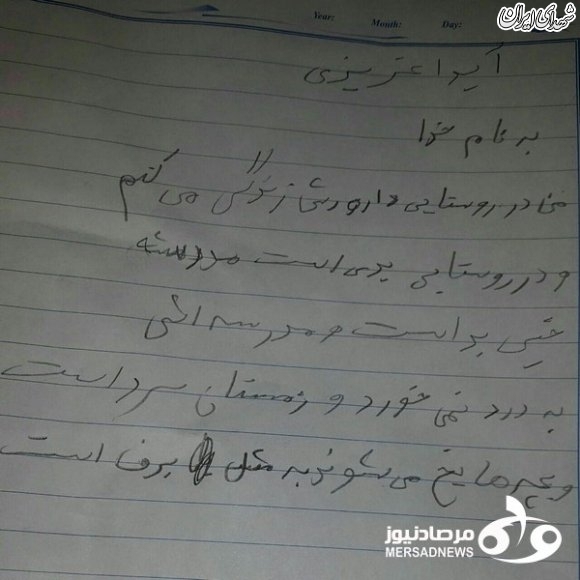 شهدای ایران
Year: Month: Day:
آیدا عزیزی
به نام خدا
در روستایی زندگی می کنم
و در روستایی بدی است مدرسه
خیلی بد است و مدرسه اش
به درد نمی خورد و زمستان سرد است
و بچه ها یخ می شوند به مثل برف است
مرصادنیوز
MERSADNEWS